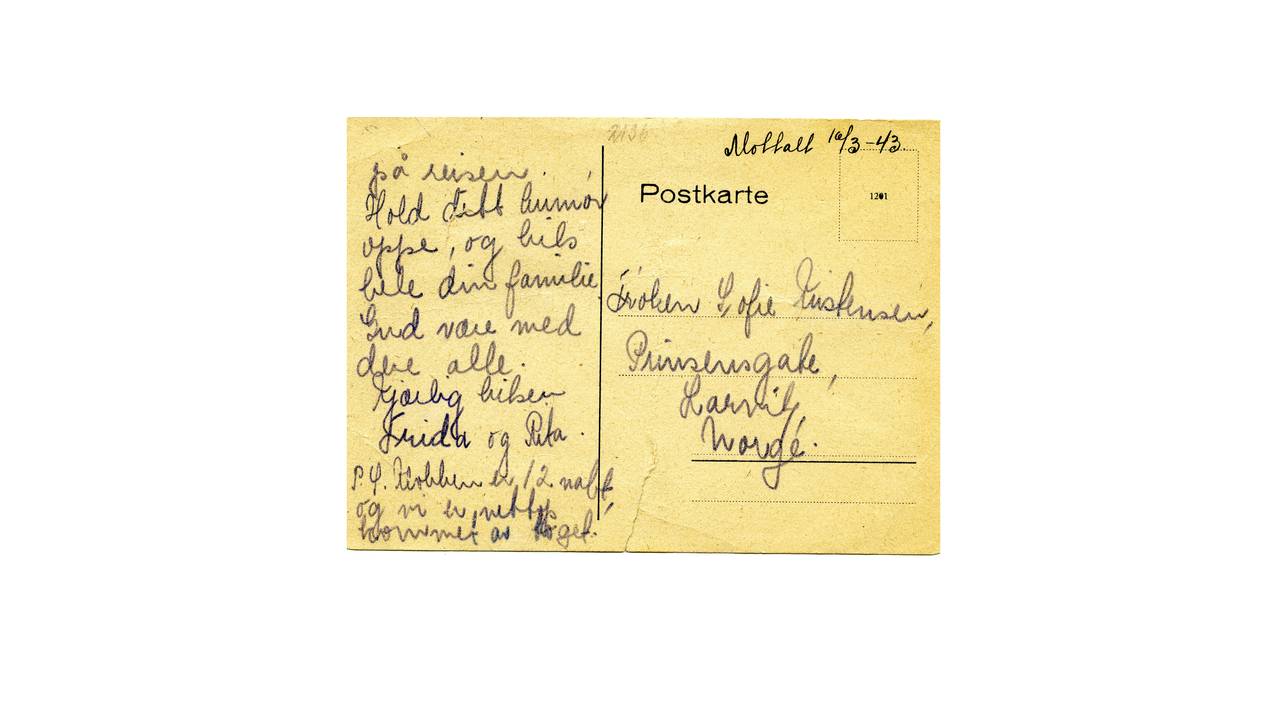 2136
Mottatt 16/3-43.
Postkarte
1201
på reisen.
Hold ditt humør
oppe, og hils
hele din familie
Gud være med
dere alle.
Kjærlig hilsen
Frida og Rita.
P.S. Klokken er 12 natt,
og vi er nettop
kommet av toget.
Frøken Sofie Kristensen,
Prinsensgate,
Larvik,
Norge.